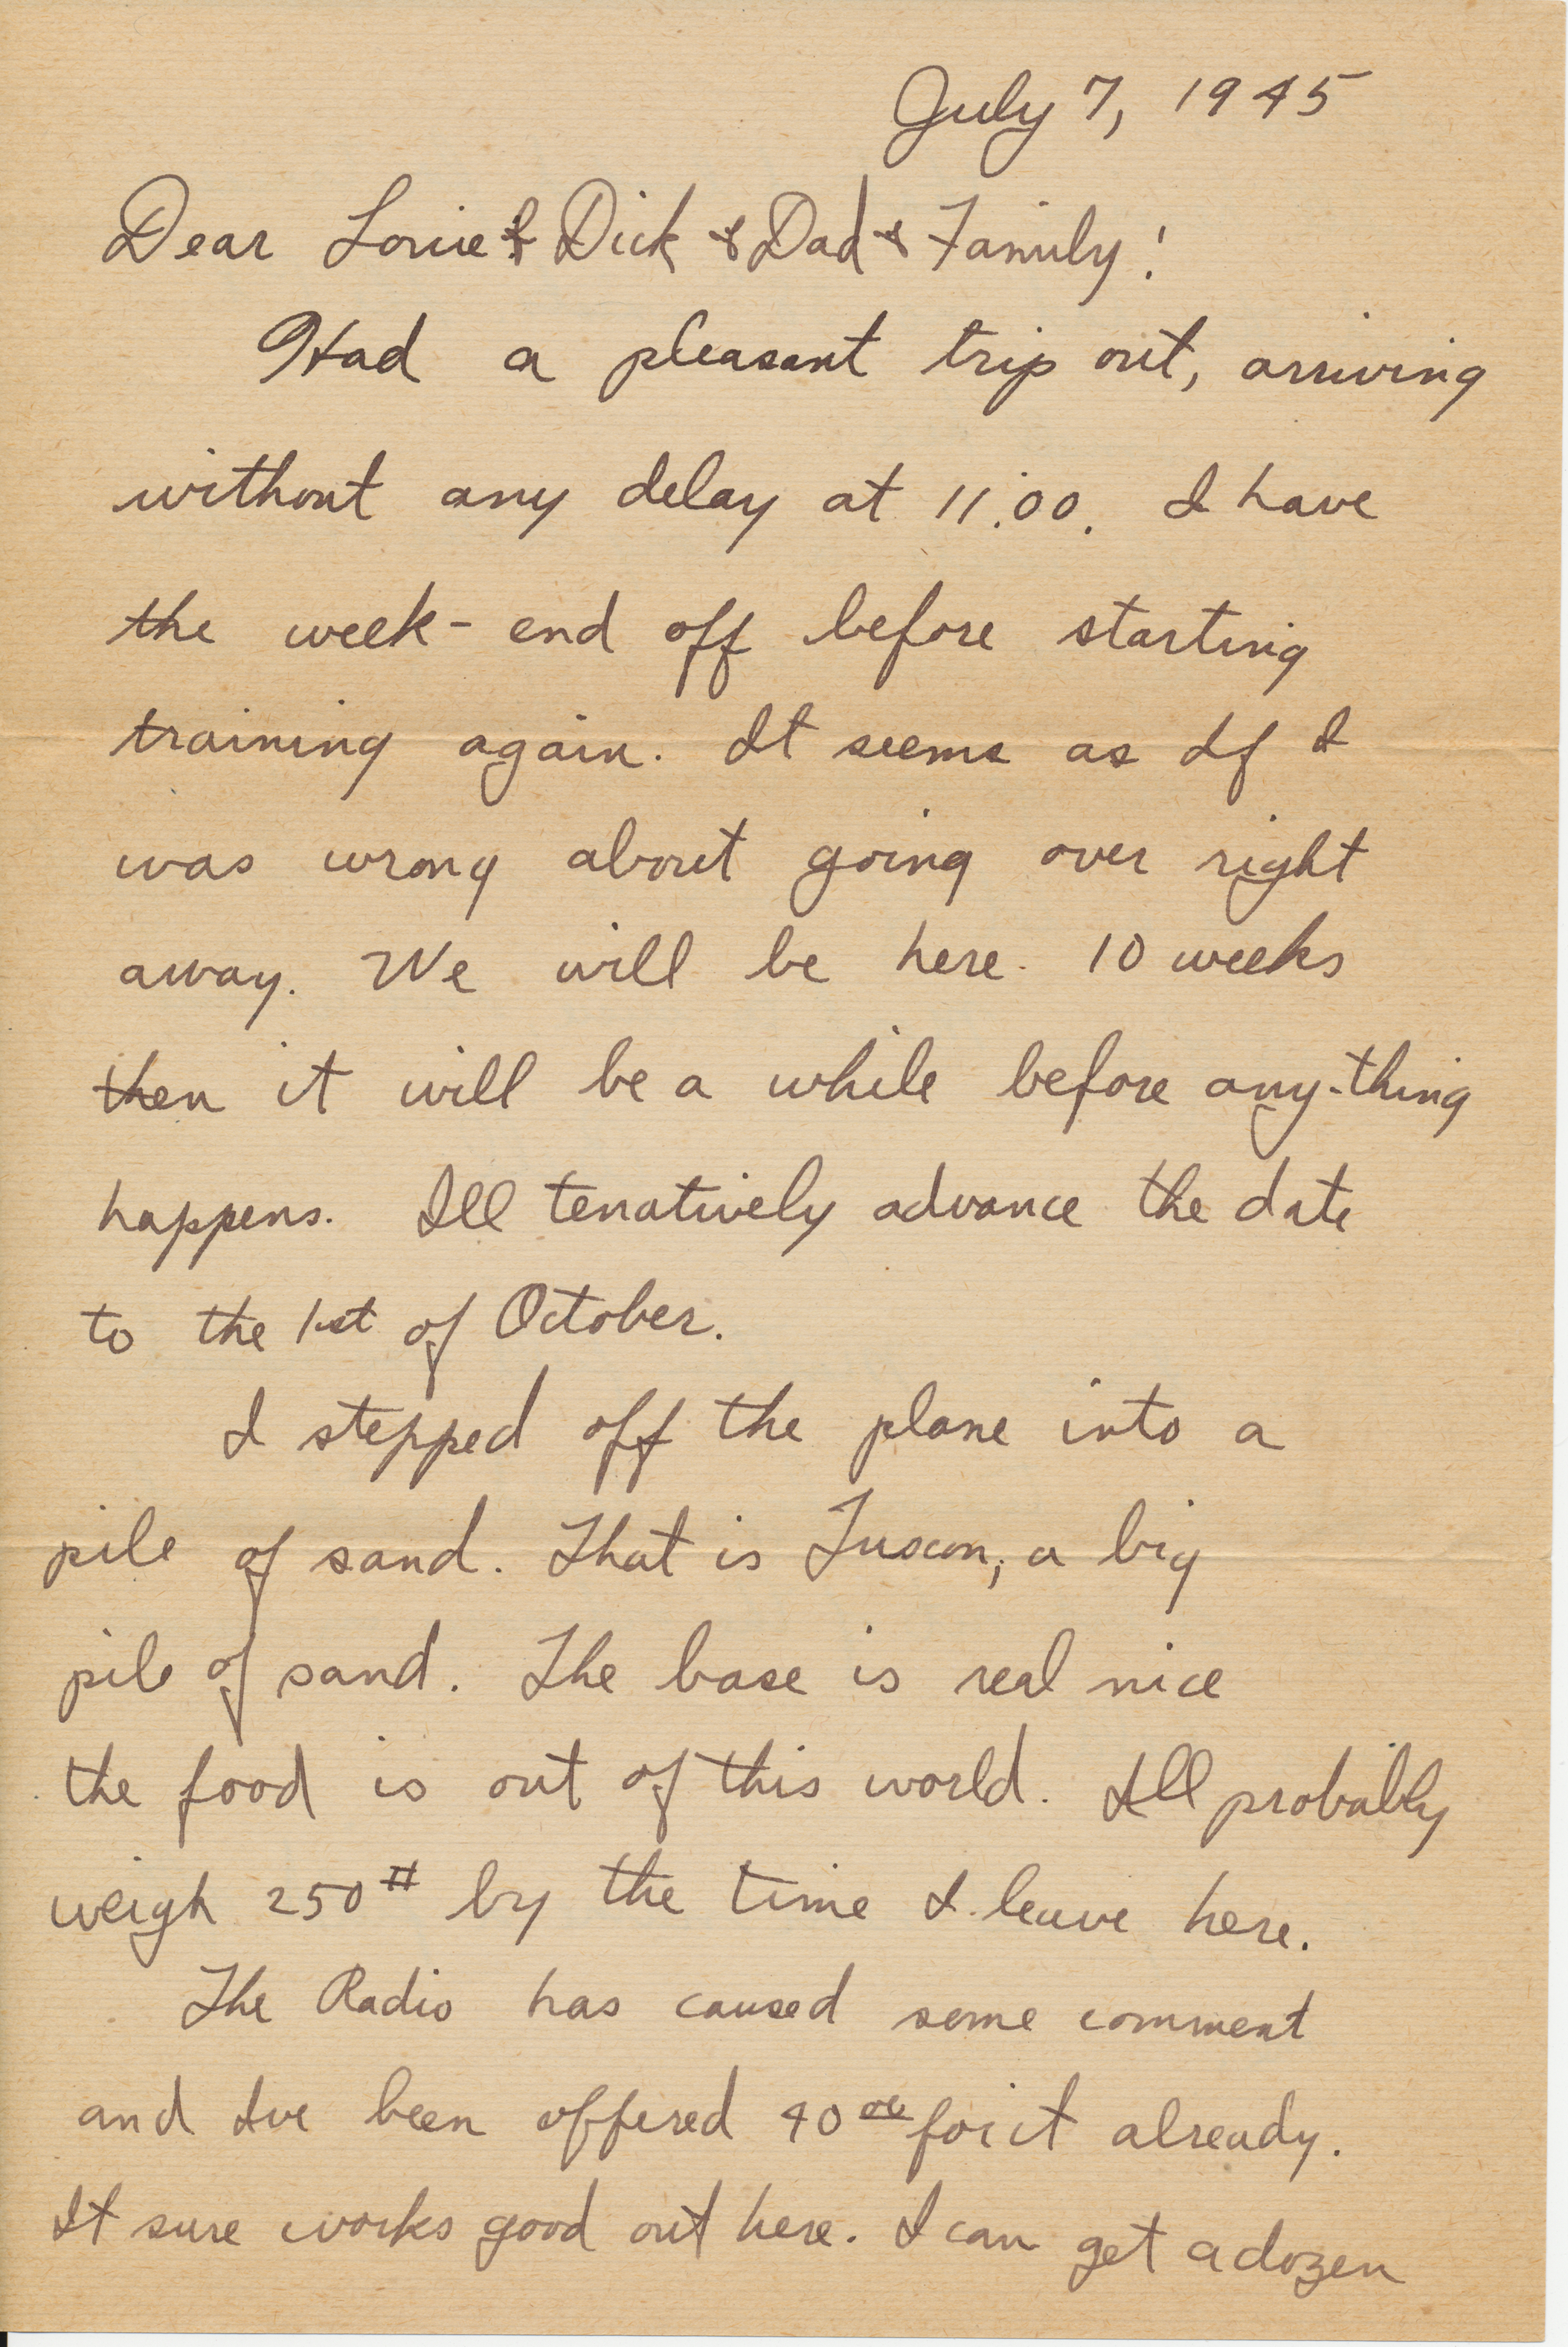 July 7, 1945
Dear Louie & Dick & Dad & Family!
Had a pleasant trip out, arriving
without any delay at 11:00. I have
the week-end off before starting
training again. It seems as If I
was wrong about going over right
away. We will be here 10 weeks
then it will be a while before any-thing
happens. Ill tenatively advance the date
to the 1st of October.
I stepped off the plane into a
pile of sand. That is Tuscon, a big
pile of sand. The base is real nice
the food is out of this world. Ill probably
weigh 250# by the time I leave here.
The Radio has caused some comment
and Ive been offered 40 00 for it already.
It sure works good out here. I can get a dozen